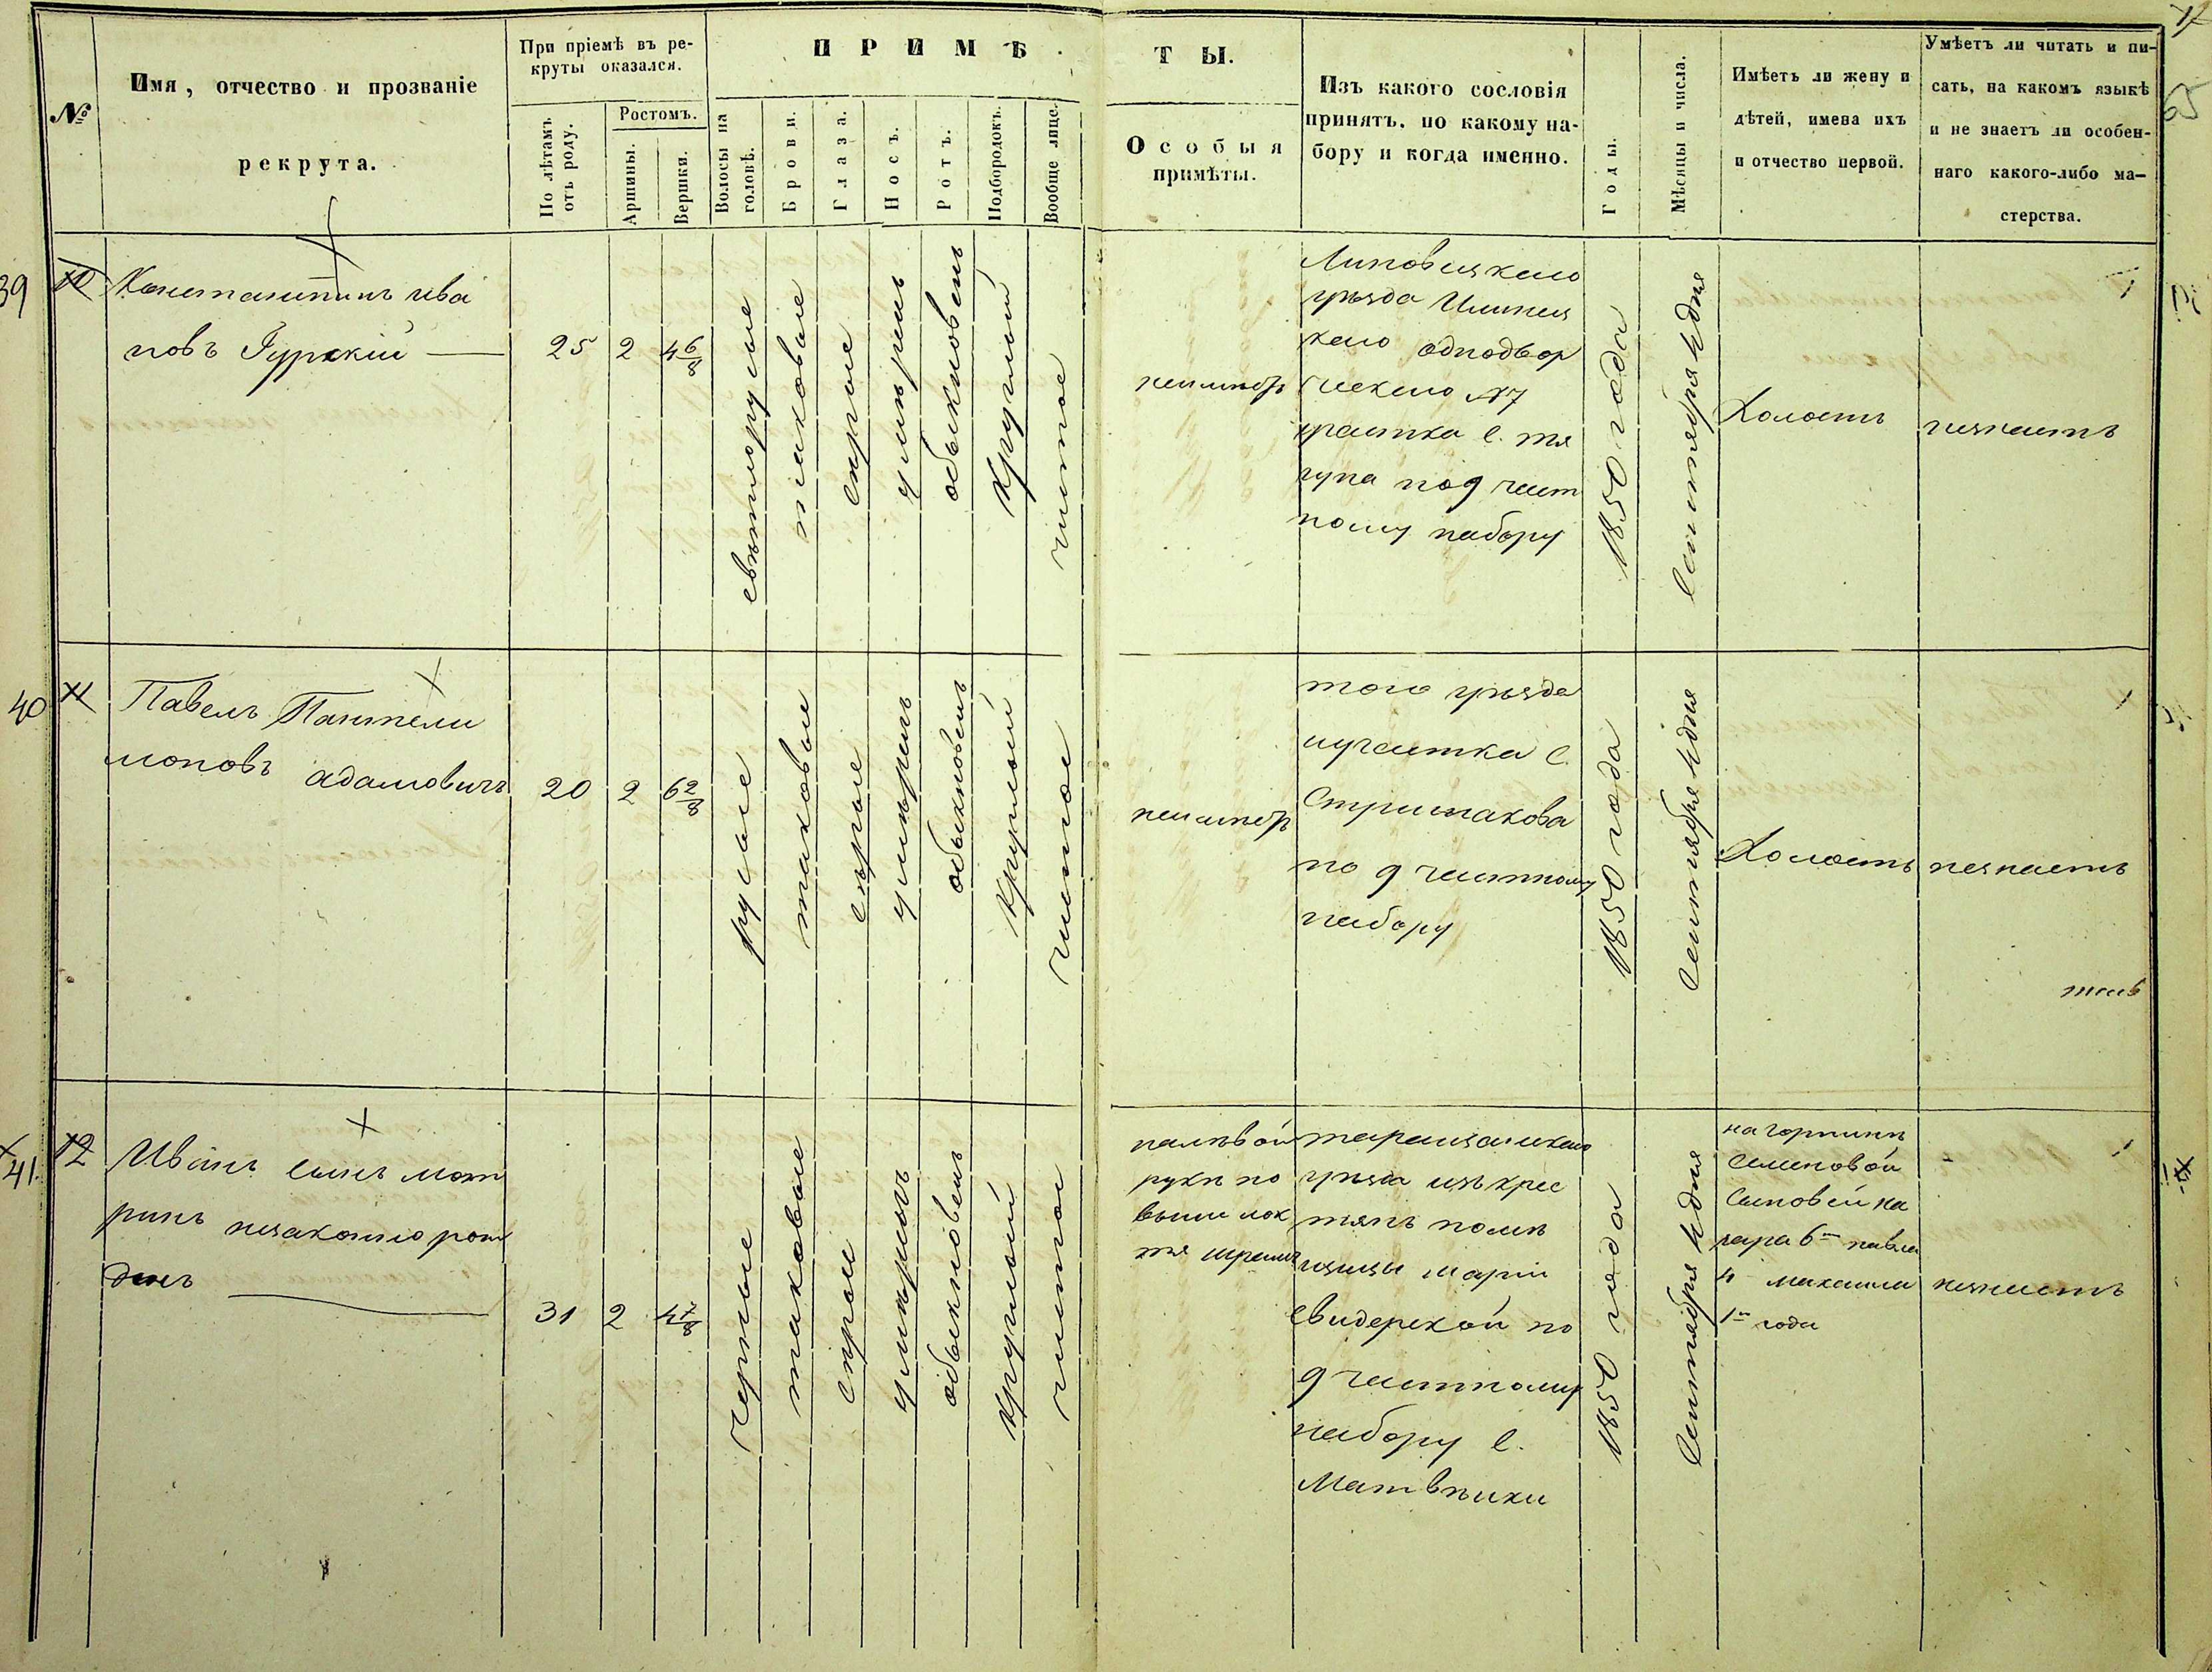 17
65
№
Имя, отчество и прозваніе
рекрута.
При пріемѣ въ ре-
круты оказался.
По лѣтамъ
отъ роду.
Ростомъ.
Аршины.
Вершки.
ПРИМѢ
ТЫ.
Волосы на
головѣ.
Брови.
Глаза.
Носъ.
Ротъ.
Подбородокъ.
Вообще лице.
Особыя
примѣты.
Изъ какого сословія
принятъ. по какому на-
бору и когда именно.
Годы.
Мѣсяцы и числа.
Имѣетъ ли жену и
дѣтей, имена ихъ
и отчество первой.
Умѣетъ ли читать и пи-
сать, на какомъ языкѣ
и не знаетъ ли особен-
наго какого-либо ма-
стерства.
39
10
Константинъ ива
новъ Гурскій
25
2
4 6/8
свѣтлорусые
таковые
сѣрые
умѣренъ
обыкновенъ
круглый
чистое
неимѣетъ
Липовецкаго
уѣзда Илинец
каго однодвор
ческаго №7
участка с. тя
гуна по 9 част
ному набору
1850 года
Сентября 4 дня
Холостъ
незнаетъ
40
11
Павелъ Пантели
моновъ адамовичъ
20
2
6 2/8
русые
таковые
сѣрые
умѣренъ
обыкновенъ
круглый
чистое
неимѣетъ
того уѣзда
иучастка с.
Стрижакова
по 9 частному
набору
1850 года
Сентября 4 дня
Холостъ
незнаетъ
41.
12
Иванъ сынъ мот
ринъ незаконно рож
денъ
31
2
4 7/8
черные
таковые
сѣрые
умѣренъ
обыкновенъ
круглый
чистое
налѣвой
руки по
выше лок
тя шрамъ
таращанскаго
уѣзда изъ крес
тянъ помѣ
щицы маріи
Свидерской по
9 частному
набору с.
Матвѣихи
1850 года
Сентября 4 дня
Семеновой
Сыновей на
зара 6 павла
4 михаила
1 года
незнаетъ